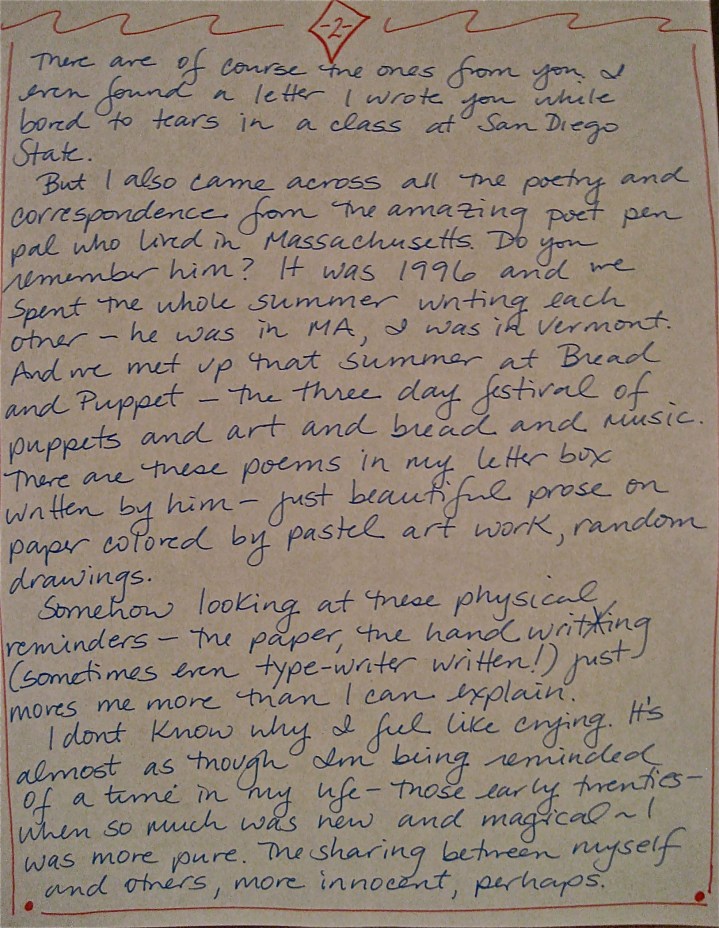 -2-
There are of course the ones from you. I
even found a letter I wrote you while
bored to tears in a class at San Diego
State.
But I also came across all the poetry and
correspondence from the amazing poet pen
pal who lived in Massachusetts. Do you
remember him? It was 1996 and we
spent the whole summer writing each
other - he was in MA, I was in Vermont.
And we met up that summer at Bread
and Puppet - the three day festival of
puppets and art and bread and music.
There are these poems in my letter box
written by him - just beautiful prose on
paper colored by pastel art work, random
drawings.
Somehow looking at these physical
reminders - the paper, the hand writing
(sometimes even type-writer written!) just
moves me more than I can explain.
I dont know why I feel like crying. It's
almost as though Im being reminded
of a time in my life - those early twenties -
when so much was new and magical ~ I
was more pure. The sharing between myself
and others, more innocent, perhaps.